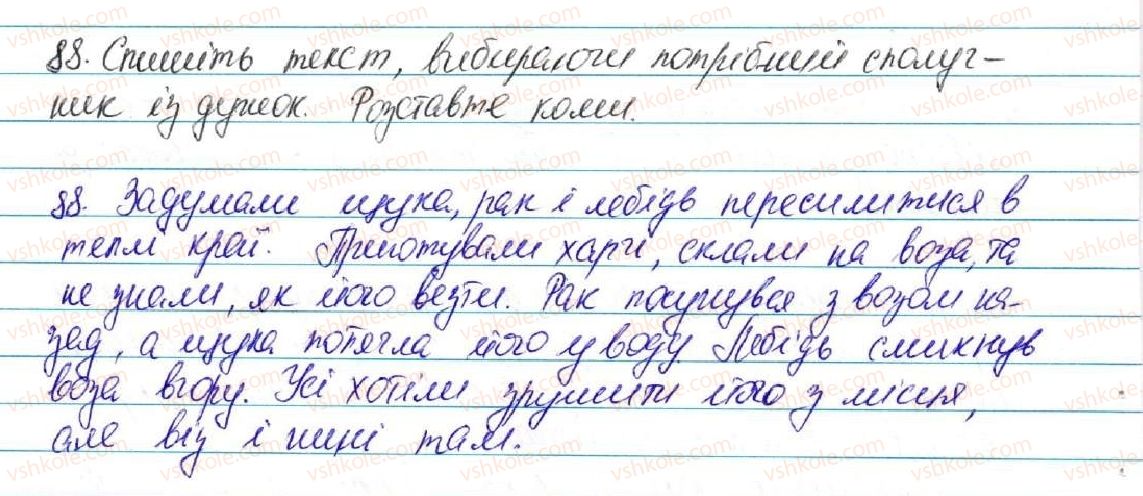 88. Спишіть текст, вибираючи потрібний сполуч-
ник із дужок. Розставте коми.
88. Задумали щука, рак і лебідь переселитися в
теплі краї. Приготували харчі, склали на воза, та
не знали, як його везти. Рак посунувся з возом на-
зад, а щука потягла його у воду Лебідь смикнув
воза вгору. Усі хотіли зрушити його з місця,
але віз і нині там.